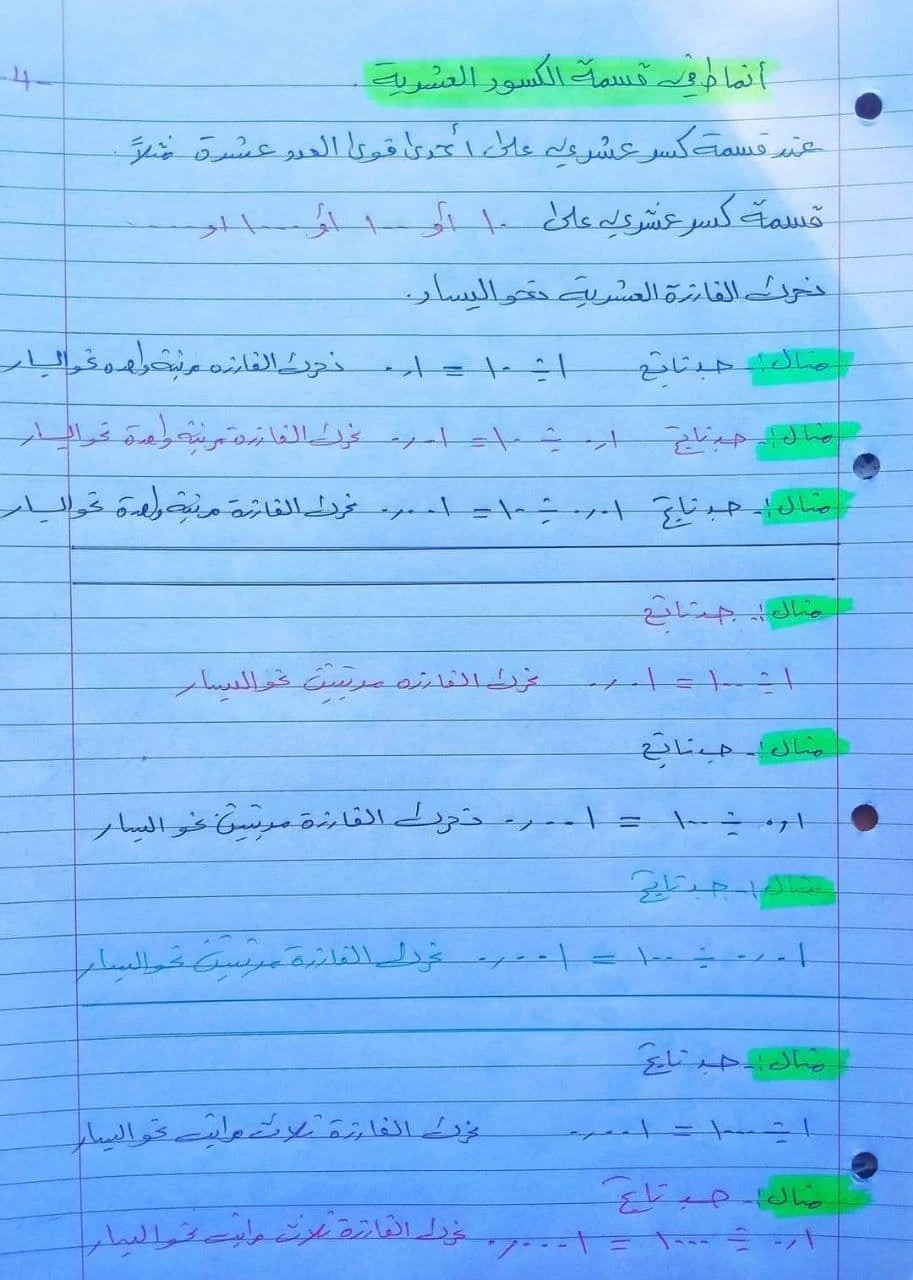 -4
أنماط في قسمة الكسور العشرية.
عند قسمة كسر عشري على أحدى قوى العدد عشرة مثلاً
قسمة كسر عشري على ١٠ أو ١٠٠ أو ١٠٠٠ او ......
نحرك الفارزة العشرية نحو اليسار.
مثال:- جد ناتج ١ ÷ ١٠ = ٠,١ نحرك الفارزه مرتبة واحده نحو اليسار
مثال:- جد ناتج ٠,١ ÷ ١٠ = ٠,٠١ نحرك الفارزة مرتبة واحدة نحو اليسار
مثال:- جد ناتج ٠,٠١ ÷ ١٠ = ٠,٠٠١ نحرك الفارزة مرتبة واحدة نحو اليسار
مثال:- جد ناتج
١ ÷ ١٠٠ = ٠,٠١ نحرك الفارزه مرتبتين نحو اليسار
مثال:- جد ناتج
٠,١ ÷ ١٠٠ = ٠,٠٠١ نحرك الفارزة مرتبتين نحو اليسار
مثال:- جد ناتج
٠,٠١ ÷ ١٠٠ = ٠,٠٠٠١ نحرك الفارزة مرتبتين نحو اليسار
مثال:- جد ناتج
١ ÷ ١٠٠٠ = ٠,٠٠١ نحرك الفارزة ثلاث مراتب نحو اليسار
مثال:- جد ناتج
٠,١ ÷ ١٠٠٠ = ٠,٠٠٠١ نحرك الفارزة ثلاث مراتب نحو اليسار